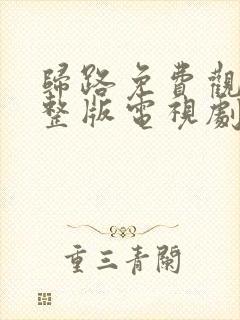 歸路免費觀
整版電視劇
重三青閣